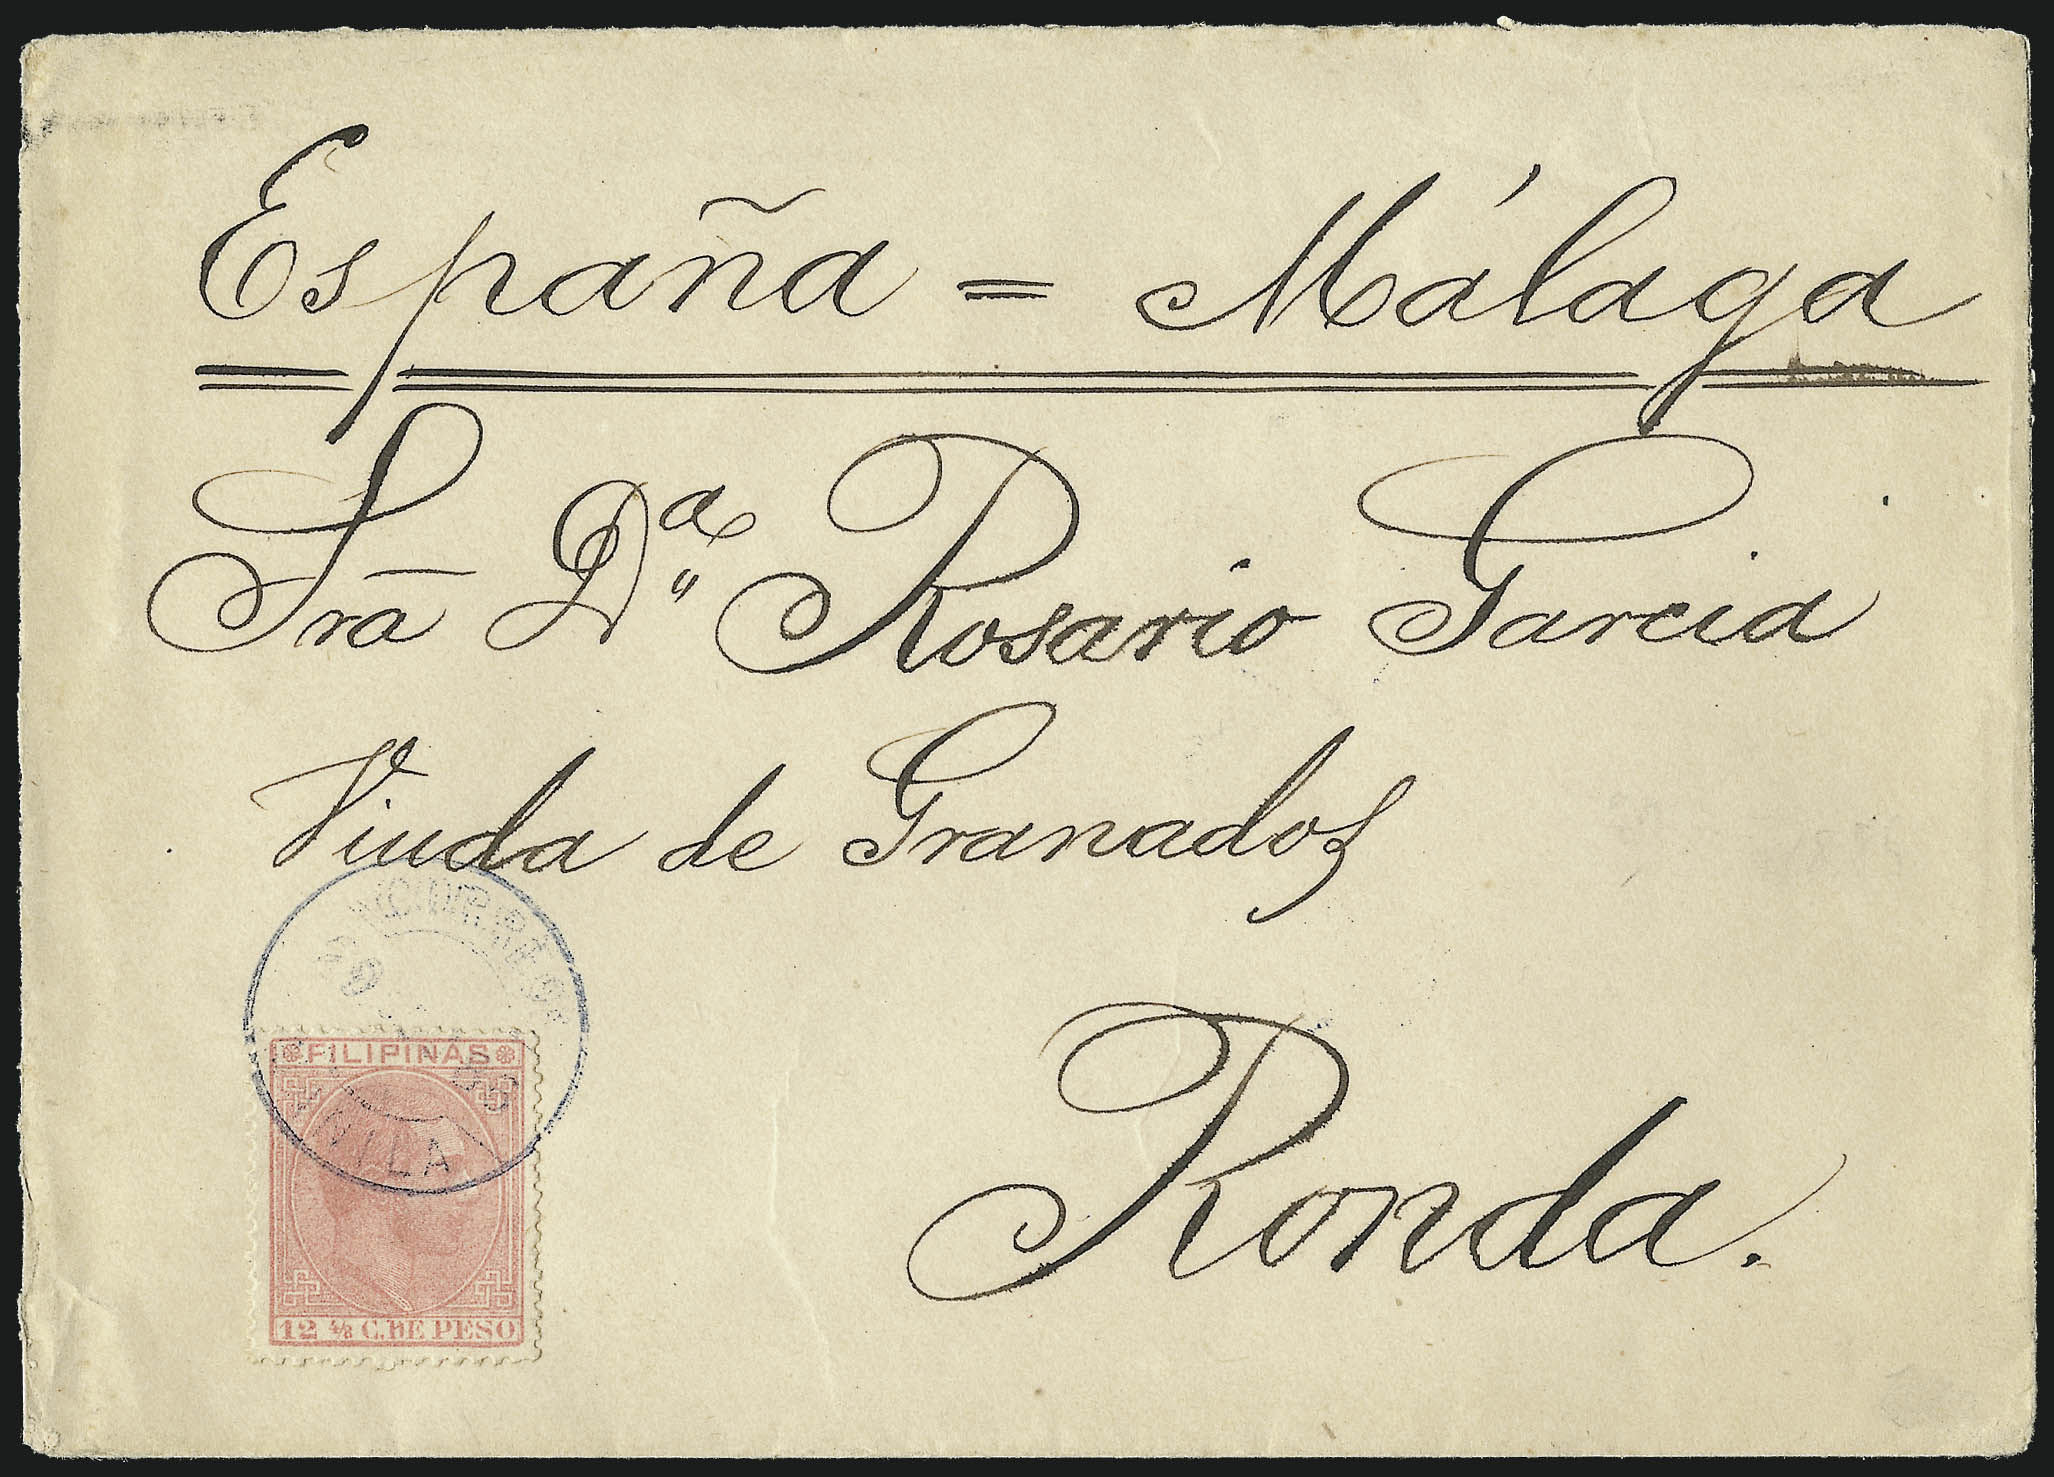 España = Málaga
Sra Dª Rosario Garcia
Viuda de Granados
Ronda.
FILIPINAS
MANILA
12 4/8 C. DE PESO